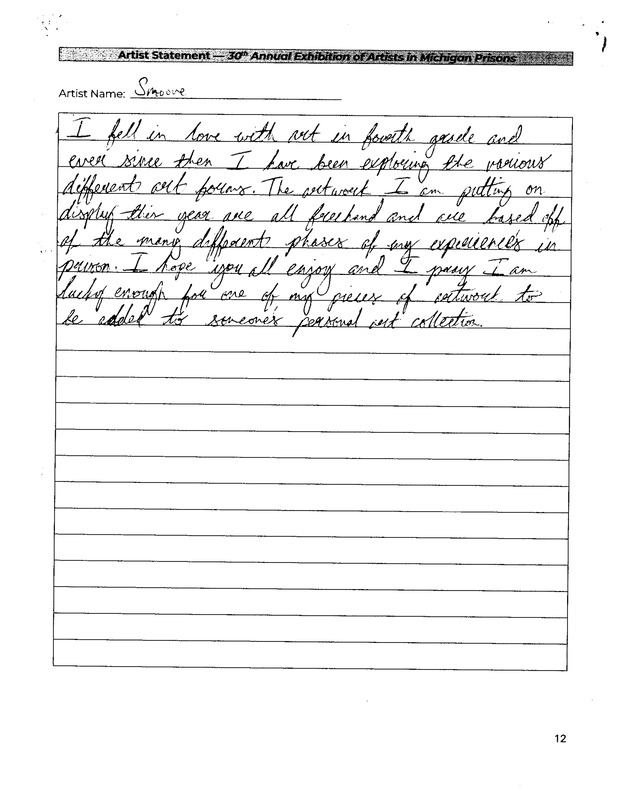 Artist Statement — 30th Annual Exhibition of Artists in Michigan Prisons
Artist Name: Smoove
I fell in love with art in fourth grade and
ever since then I have been exploring the various
different art forms. The artwork I am putting on
display this year are all freehand and are based off
of the many different phases of my experience's in
prison. I hope you all enjoy and I pray I am
lucky enough for one of my pieces of artwork to
be added to someone's personal art collection.
12